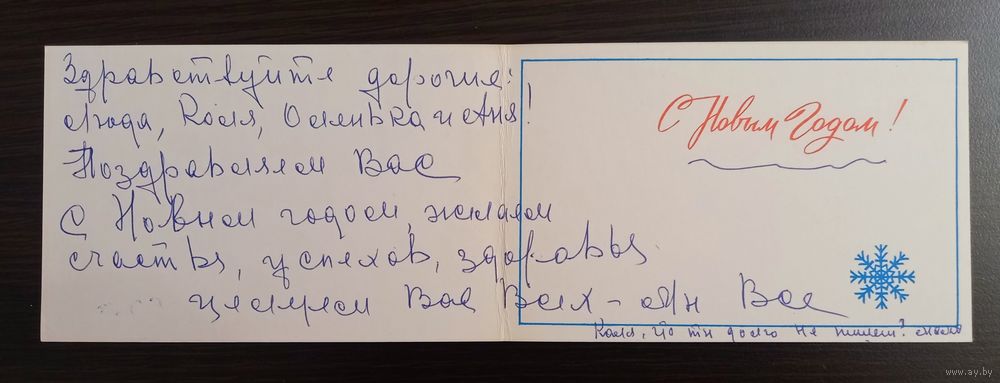 Здравствуйте дорогие:
Люда, Коля, Оленька и Аня!
Поздравляем Вас
С Новым годом, желаем
счастья, успехов, здоровья
целуем Вас Всех - Вас
С Новым Годом!
Коля, что ты долго не пишем?
www.ay.by